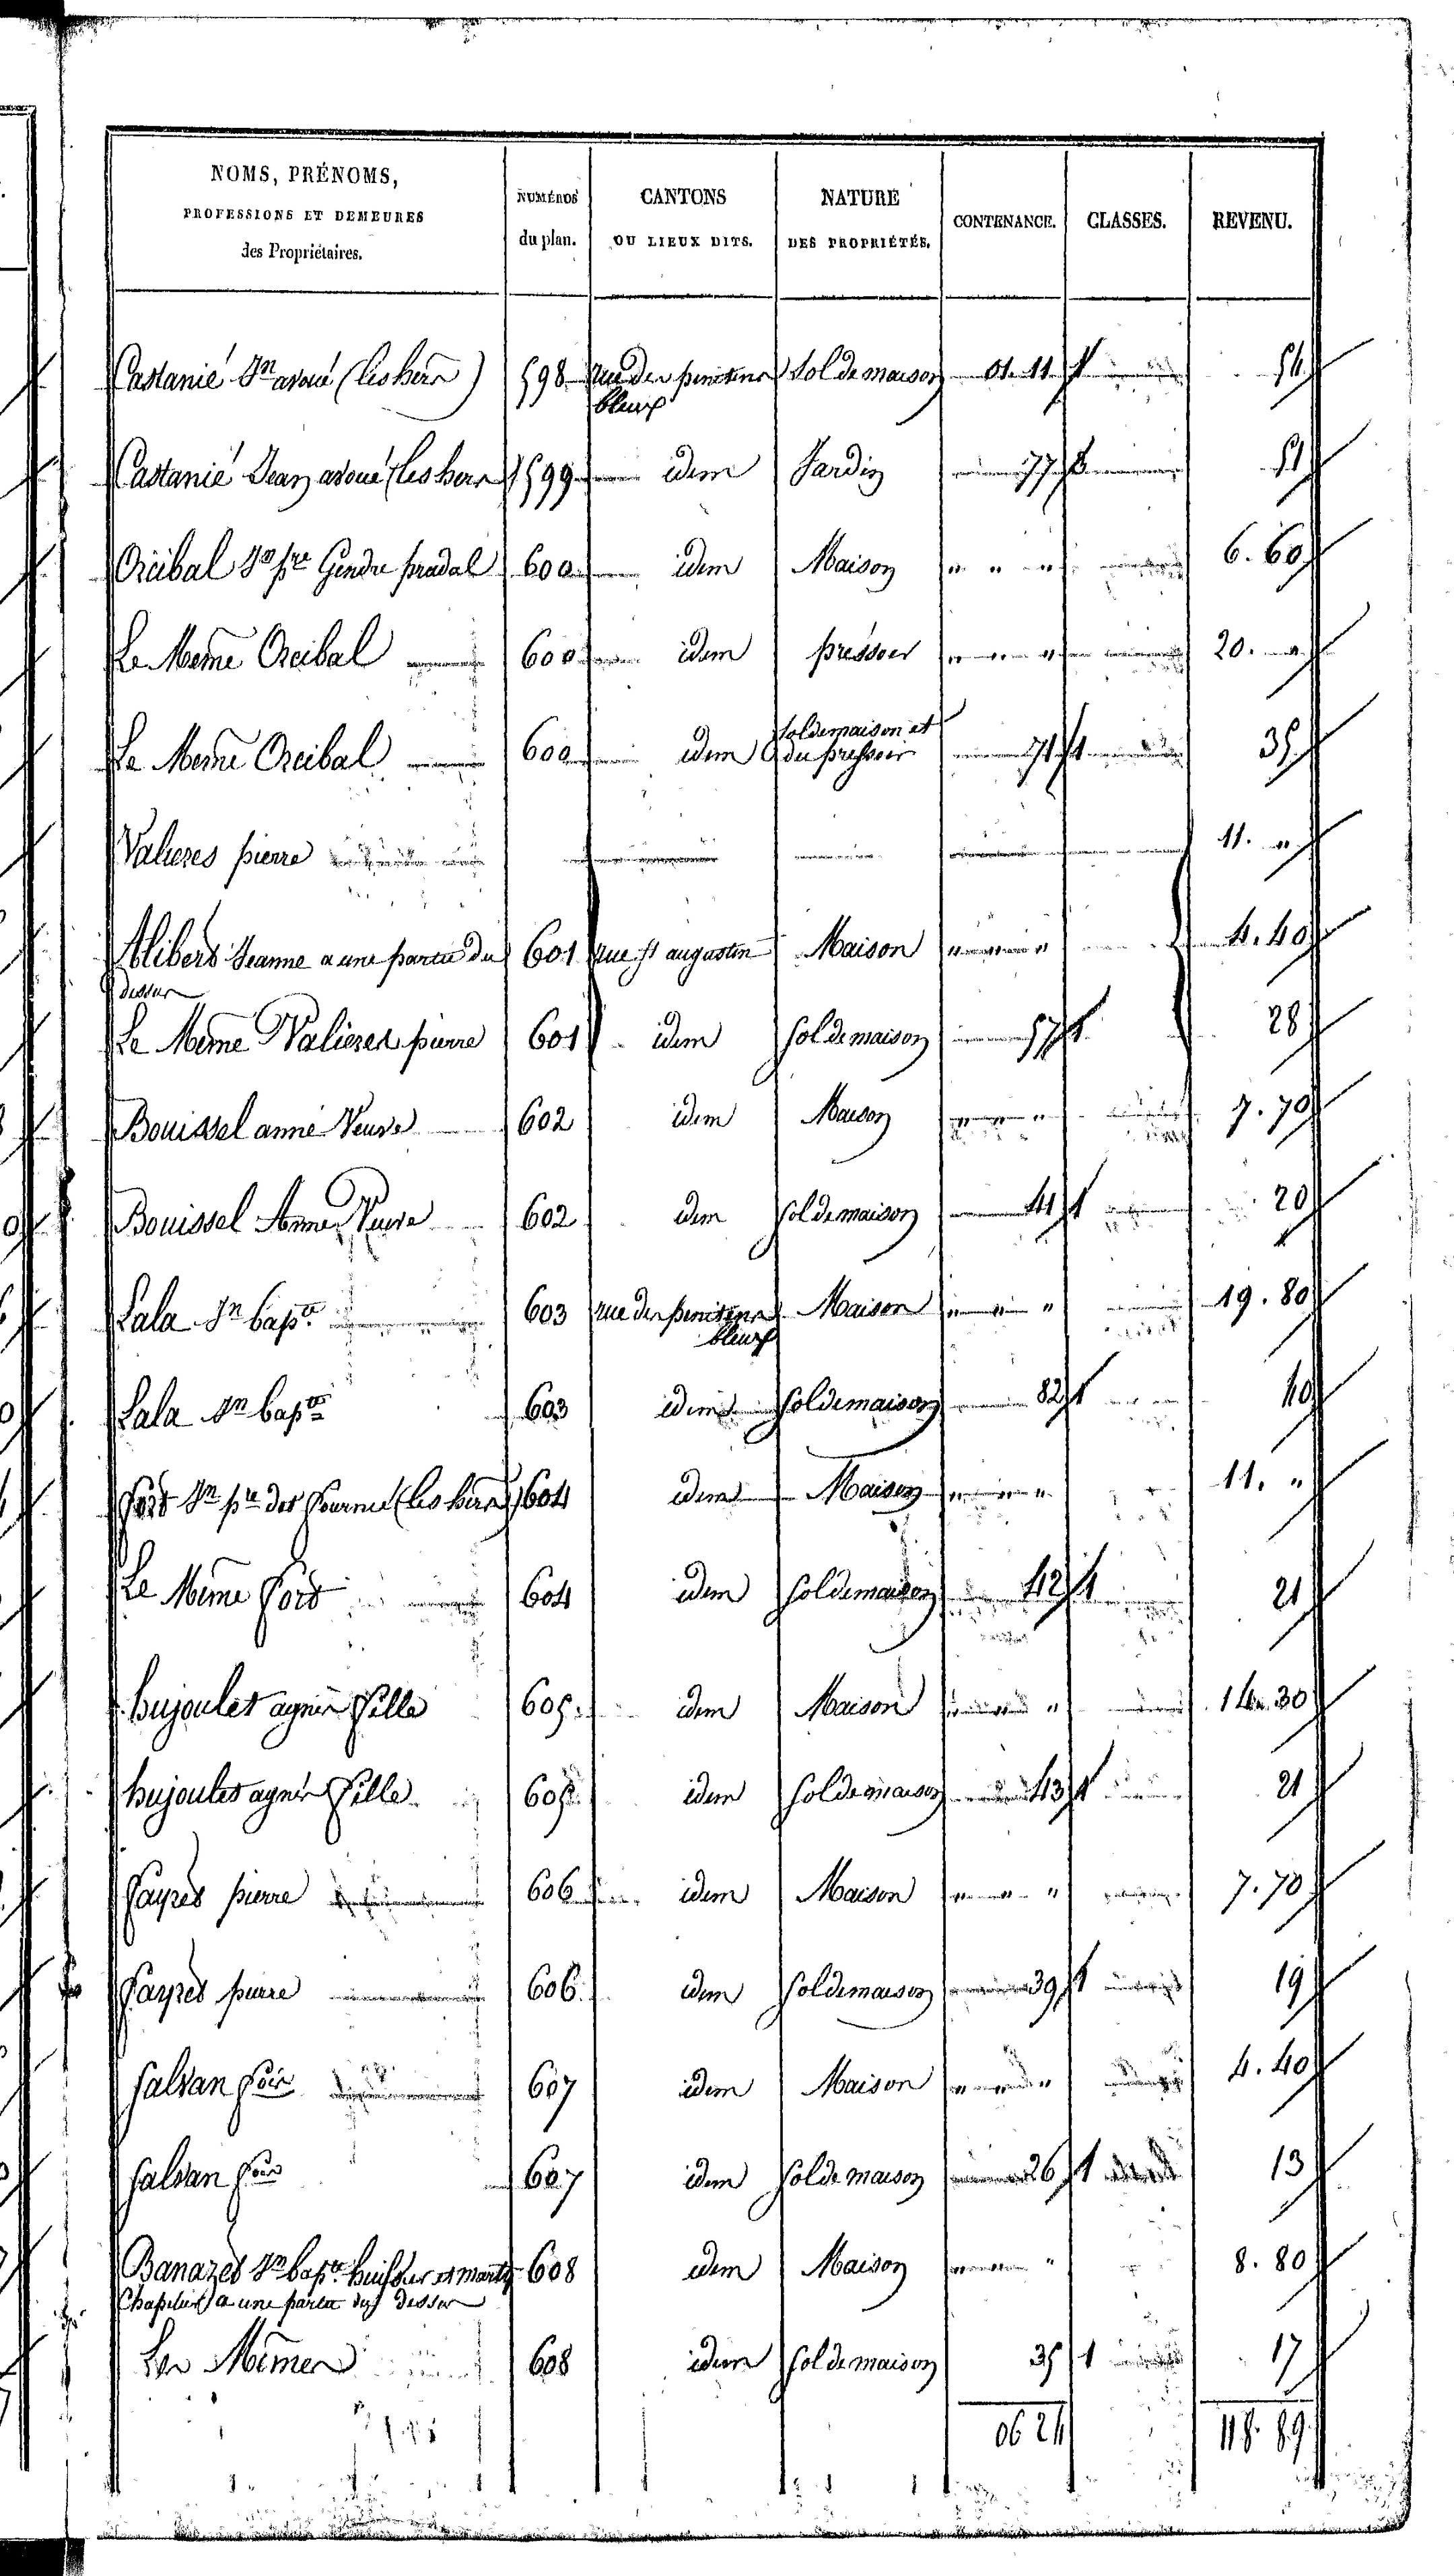 NOMS, PRÉNOMS, PROFESSIONS ET DEMEURES des Propriétaires. | NUMÉROS du plan. | CANTONS OU LIEUX DITS. | NATURE DES PROPRIÉTÉS. | CONTENANCE. | CLASSES. | REVENU.
Castanié Jn avoué (les hers) 598 rue des penitens bleux Sol de maison 01. 11. 1
Castanié Jean avoué (les hers) 599 idem Jardin 77
Orcibal Jn pre Gendre pradal 600 idem Maison " " " 6. 60
Le Meme Orcibal 600 idem pressoir " " " 20. "
Le Meme Orcibal 600 idem Sol de maison et du pressoir 71 1 35
Valieres pierre 11. "
Alibert Jeanne a une partie du dessus 601 rue st augustin Maison " " " 4. 40
Le Meme Valieres pierre 601 idem Sol de maison 57 1 28
Bouissel anne Veuve 602 idem Maison " " " 7. 70
Bouissel Anne Veuve 602 idem Sol de maison 41 1 20
Lala Jn bapte 603 rue des penitens bleux Maison " " " 19. 80
Lala Jn bapte 603 idem Sol de maison 82 1 40
Fort Jn pre dit Fournié (les hers) 604 idem Maison " " " 11. "
Le Meme Fort 604 idem Sol de maison 42 1 21
hujoulet agnès Fille 605 idem Maison " " " 14. 30
hujoulet agnès Fille 605 idem Sol de maison 43 1 21
Fayret pierre 606 idem Maison " " " 7. 70
Fayret pierre 606 idem Sol de maison 39 1 19
Salvan fois 607 idem Maison " " " 4. 40
Salvan fois 607 idem Sol de maison 26 1 13
Banazet Jn bapte huissier et Marty Chapelier a une partie du dessus 608 idem Maison " " " 8. 80
Les Mêmes 608 idem Sol de maison 35 1 17
06 24 118. 89